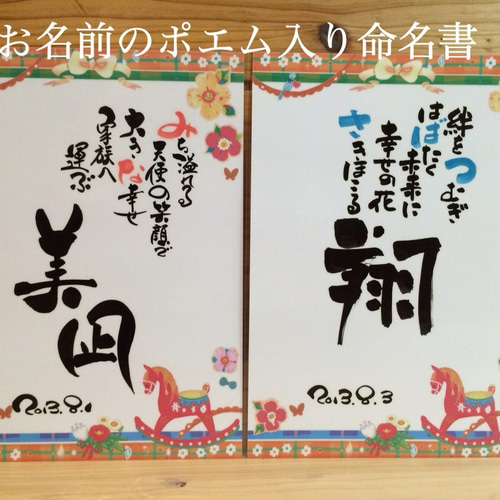 お名前のポエム入り命名書
みち溢れる
天使の笑顔で
大きな幸せ
家族へ
運ぶ
美凪
2013.8.1
絆をつむぎ
はばたく未来に
幸せの花
さきほこる
翔
2013.8.3